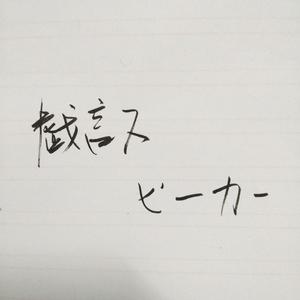 戯言ス
ピーカー